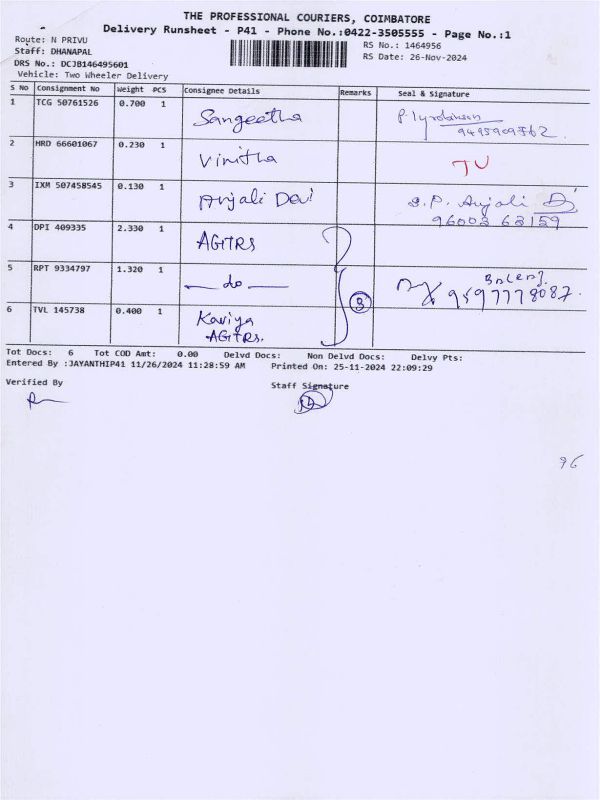 THE PROFESSIONAL COURIERS, COIMBATORE
Delivery Runsheet - P41 - Phone No.:0422-3505555 - Page No.:1
Route: N PRIVU
RS No.: 1464956
Staff: DHANAPAL
RS Date: 26-Nov-2024
DRS No.: DCJB146495601
Vehicle: Two Wheeler Delivery
S No Consignment No Weight PCS Consignee Details Remarks Seal & Signature
1 TCG 50761526 0.700 1 Sangeetha
2 HRD 66601067 0.230 1 Vinitha TU
3 IXM 507458545 0.130 1 Anjali Devi S.P. Anjali
96003 63159
4 DPI 409335 2.330 1 AGITRS
5 RPT 9334797 1.320 1 — do — 3 9597778087
6 TVL 145738 0.400 1 Kaviya
AGITRS.
Tot Docs: 6 Tot COD Amt: 0.00 Delvd Docs: Non Delvd Docs: Delvy Pts:
Entered By :JAYANTHIP41 11/26/2024 11:28:59 AM Printed On: 25-11-2024 22:09:29
Verified By
Staff Signature
96